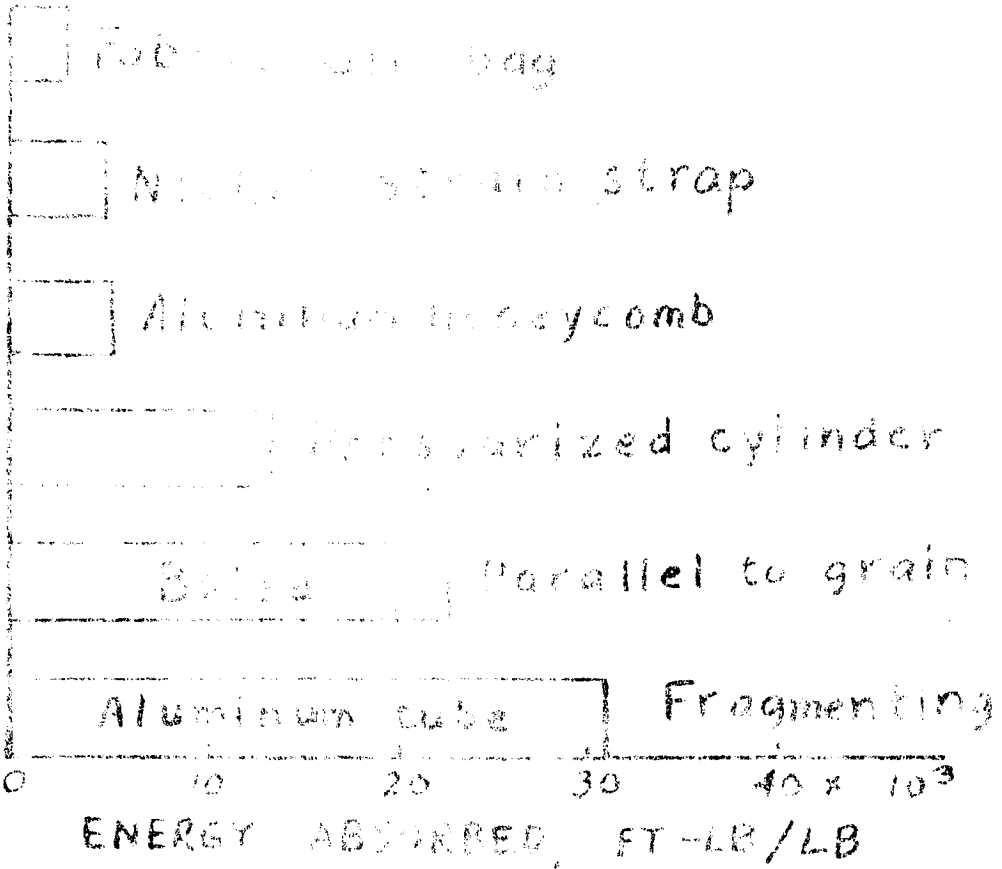 bag
strain strap
Aluminum honeycomb
Pressurized cylinder
Balsa Parallel to grain
Aluminum tube Fragmenting
0 10 20 30 40 x 10³
ENERGY ABSORBED, FT-LB/LB